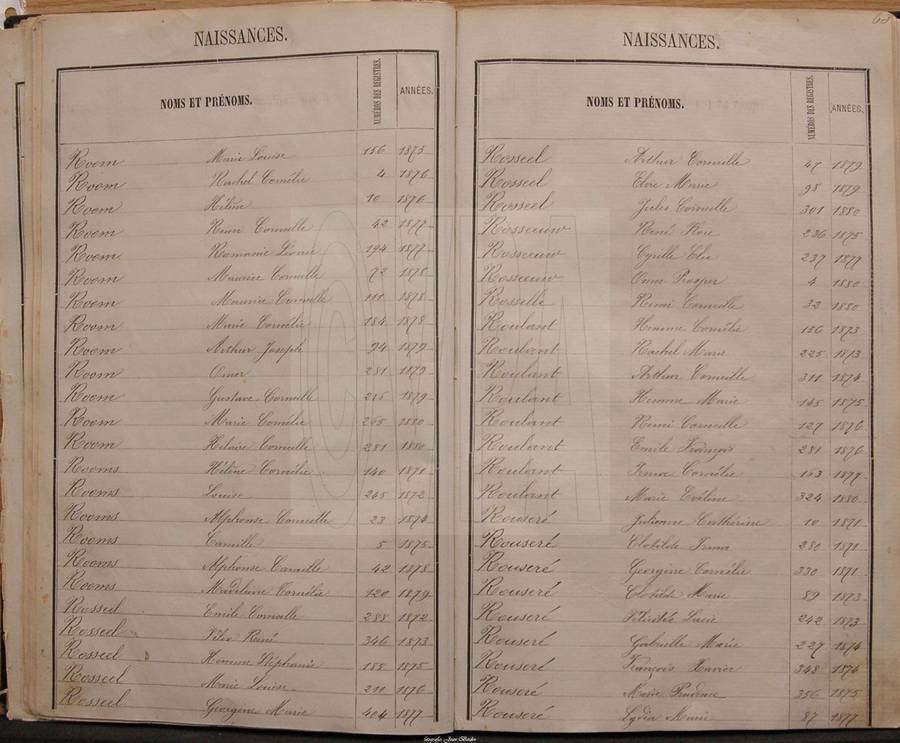 NAISSANCES.
NOMS ET PRÉNOMS. NUMÉROS DES REGISTRES. ANNÉES.
Room Marie Louise 156 1873
Room Rachel Cornélie 4 1876
Room Hélène 10 1876
Room Remi Cornille 42 1877
Room Romanie Léonie 194 1877
Room Maurice Cornille 72 1878
Room Maurice Cornille 111 1878
Room Marie Cornélie 184 1878
Room Arthur Joseph 94 1879
Room Omer 1879
Room Gustave Cornille 1879
Room Marie Cornélie 1880
Room Hilaire Cornille 281 1880
Rooms Hélène Cornélie 140 1871
Rooms Louise 265 1872
Rooms Alphonse Cornille 23 1874
Rooms Camille 5 1875
Rooms Alphonse Camille 42 1878
Rooms Madeleine Cornélie 120 1879
Rosseel Emile Cornille 288 1872
Rosseel Félix René 346 1873
Rosseel Stéphanie 185 1875
Rosseel Marie Louise 211 1876
Rosseel Georgine Marie 404 1877
63
NAISSANCES.
NOMS ET PRÉNOMS. NUMÉROS DES REGISTRES. ANNÉES.
Rosseel Arthur Cornille 47 1879
Rosseel Elvie Marie 98 1879
Rosseel Jules Cornille 301 1880
Rosseeuw Remi 236 1875
Rosseeuw Cyrille Elie 237 1877
Rosseeuw Omer Prosper 4 1880
Rosselle Remi Cornille 32 1880
Roulant Cornélie 156 1873
Roulant Rachel Marie 225 1873
Roulant Arthur Cornille 311 1874
Roulant Marie 145 1875
Roulant Remi Cornille 127 1876
Roulant Emile François 281 1876
Roulant Irma Cornélie 163 1877
Roulant Marie Eveline 324 1880
Rouseré Julienne Cathérine 10 1871
Rouseré Clotilde Irma 280 1871
Rouseré Georgine Cornélie 330 1871
Rouseré Clotilde Marie 89 1873
Rouseré Félicité Lucie 242 1873
Rouseré Gabrielle Marie 227 1874
Rouseré François Xavier 348 1874
Rouseré Marie Prudence 356 1875
Rouseré Lydia Marie 87 1877